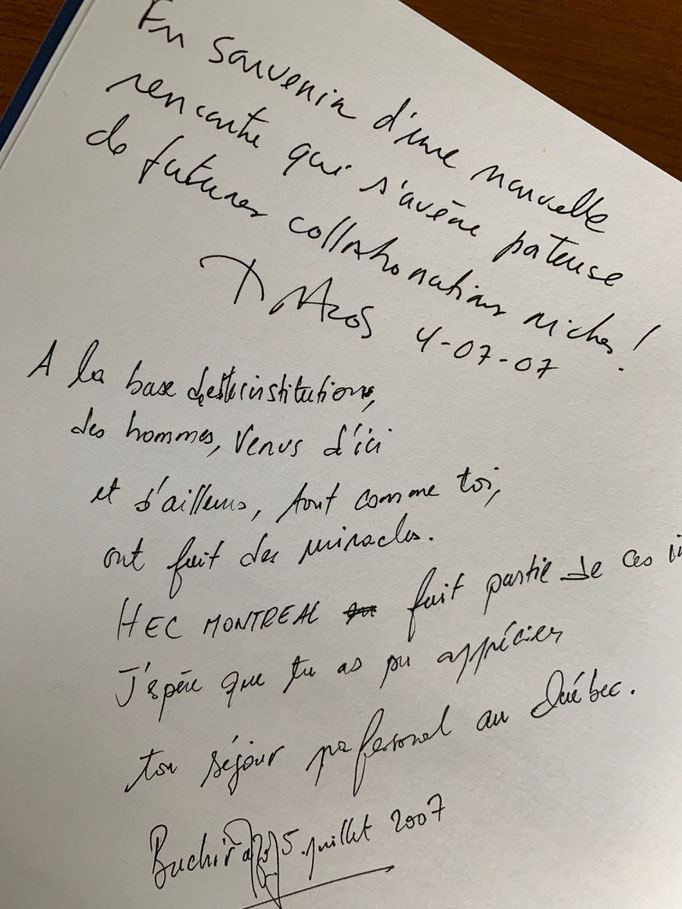 En souvenir d'une nouvelle
rencontre qui s'avère porteuse
de futures collaborations riches!
4-07-07
A la base des institutions,
des hommes, venus d'ici
et d'ailleurs, tout comme toi,
ont fait des miracles.
HEC MONTREAL fait partie de ces
J'espère que tu as pu apprécier
ton séjour professionnel au Québec.
5 juillet 2007